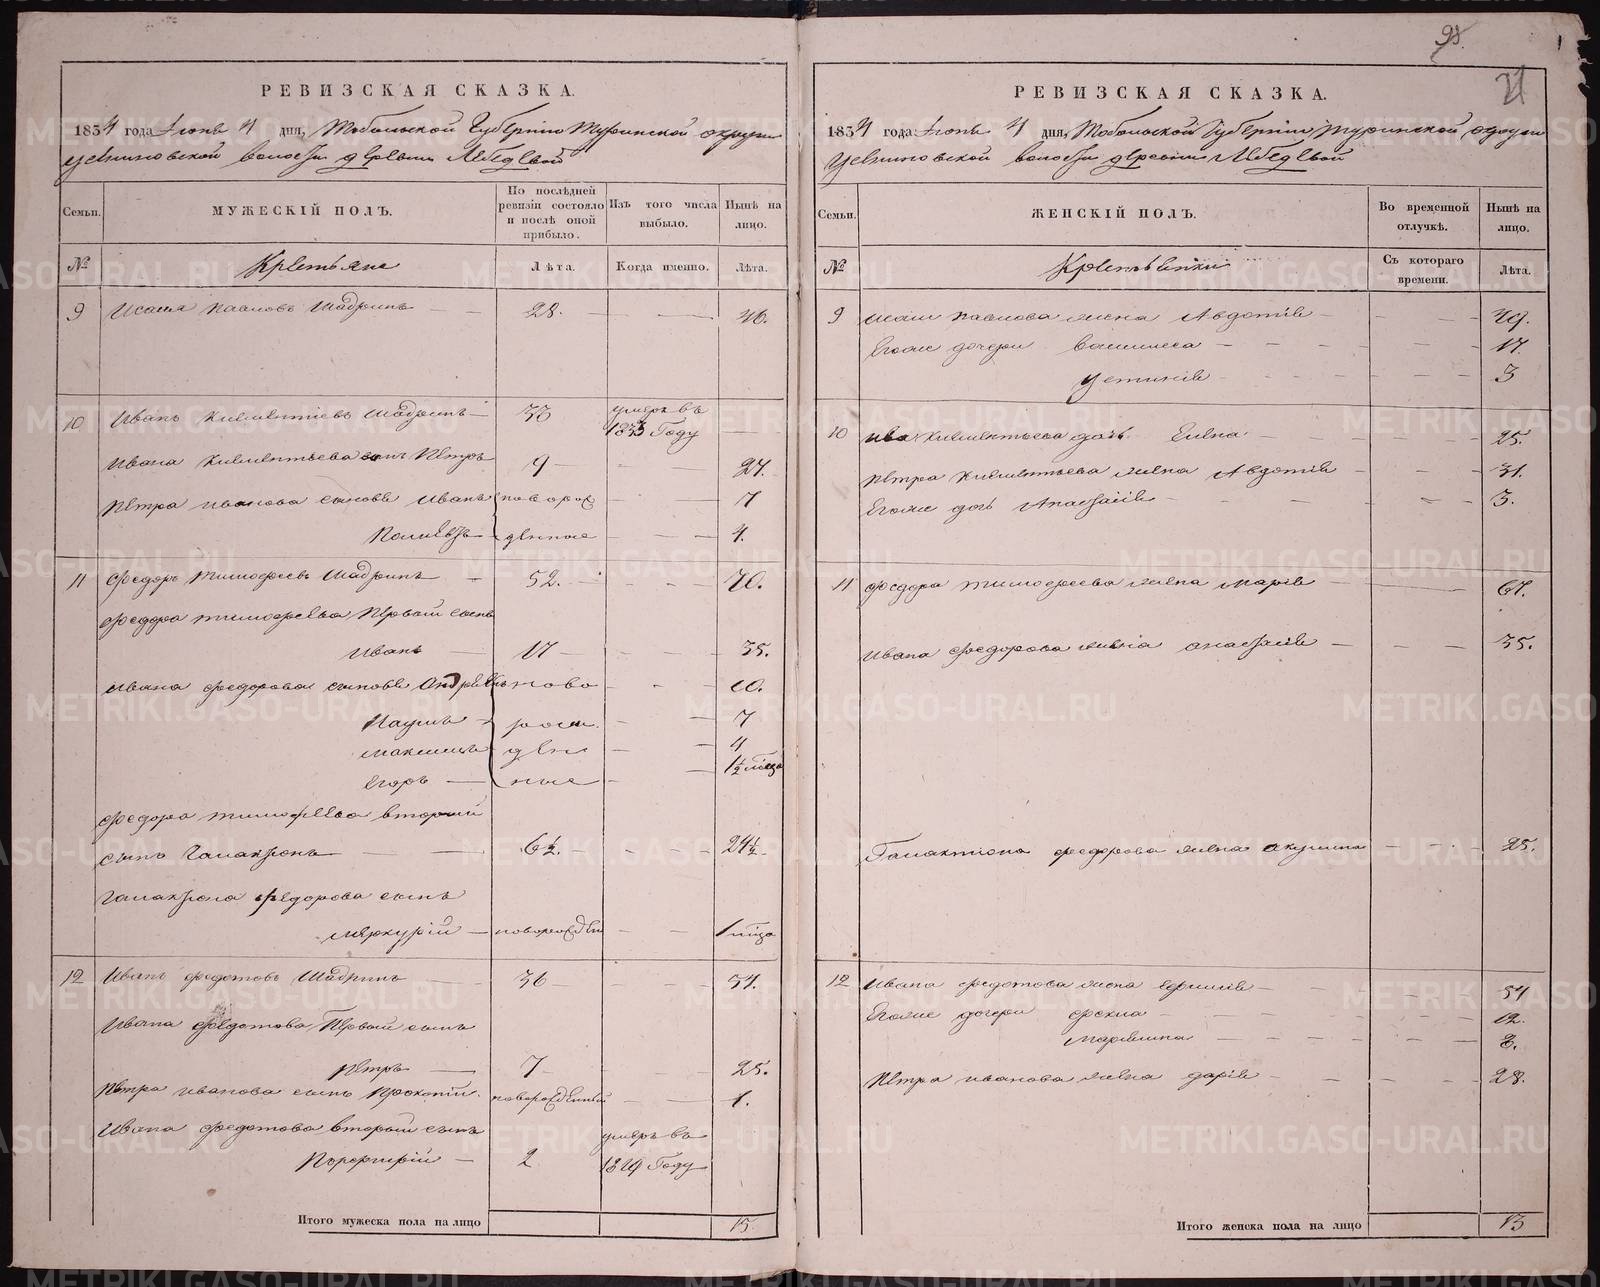 РЕВИЗСКАЯ СКАЗКА.
1834 года Іюнь 4 дня, Тобольской Губерніи Туринской округи
волости деревни Лебедевой
Семьи.
МУЖЕСКІЙ ПОЛЪ.
По послѣдней ревизіи состояло и послѣ оной прибыло.
Изъ того числа выбыло.
Нынѣ на лицо.
№
Крестьяне
Лѣта.
Когда именно.
Лѣта.
9 Исаия Павловъ Шадринъ 28. 46.
10 Иванъ Климентьевъ Шадринъ 33 умеръ въ
1833 Году
Ивана Климентьева сынъ Петръ 9 27.
Петра Иванова сыновья Иванъ новорож 7
денные 4.
11 Федоръ Тимофеевъ Шадринъ 52. 70.
Федора Тимофеева Первый сынъ
Иванъ 17 35.
Ивана Федорова сыновья Андрей ново 10.
Наумъ рож 7
Максимъ ден 4
Егоръ ные 1½ мѣсяца
Федора Тимофеева второй
сынъ Галактіонъ 6½. 24½.
Галактіона Федорова сынъ
Меркурій новорожден 1 мѣсяца
12 Иванъ Федотовъ Шадринъ 36 54.
Ивана Федотова Первый сынъ
Петръ 7 25.
Петра Иванова сынъ Прокопій новорожденный 1.
Ивана Федотова второй сынъ умеръ въ
Порфирій 2 1829 Году
Итого мужеска пола на лицо 15.
РЕВИЗСКАЯ СКАЗКА.
1834 года Іюнь 4 дня, Тобольской Губерніи Туринской округи
волости деревни Лебедевой
Семьи.
ЖЕНСКІЙ ПОЛЪ.
Во временной отлучкѣ.
Нынѣ на лицо.
№
Крестьянки
Съ котораго времени.
Лѣта.
9 Исаи Павлова жена Авдотья 49.
Егоже дочери Василиса 17.
Устинья 3
10 Ива Климентьева дочь Елена 25.
Петра Климентьева жена Авдотья 31.
Егоже дочь Анастасія 3.
11 Федора Тимофеева жена Марья 67.
Ивана Федорова жена Анастасія 35.
Галактіона Федорова жена Акулина 25.
12 Ивана Федотова жена 54
Егоже дочери Фекла 12.
Марьяна 8.
Петра Иванова жена Дарья 28.
Итого женска пола на лицо 13
METRIKI.GASO-URAL.RU